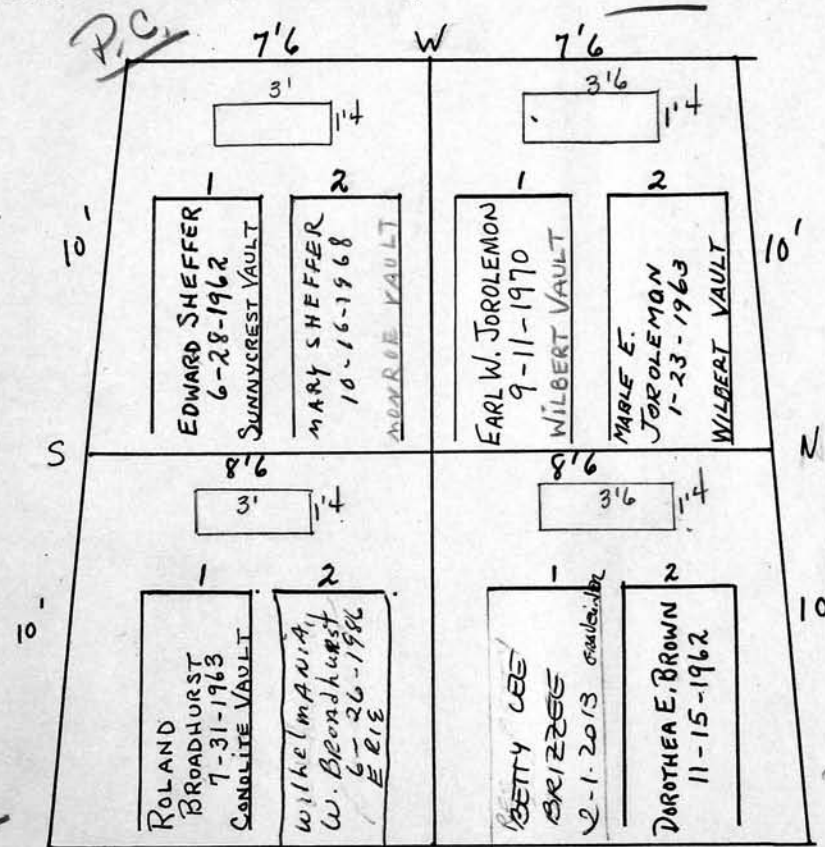 P.C.
7'6
W
7'6
3'
1'4
3'6
1'4
10'
1
EDWARD SHEFFER
6-28-1962
SUNNYCREST VAULT
2
MARY SHEFFER
10-16-1968
MONROE VAULT
1
EARL W. JOROLEMON
9-11-1970
WILBERT VAULT
2
MABLE E.
JOROLEMON
1-23-1963
WILBERT VAULT
10'
S
N
8'6
3'
1'4
8'6
3'6
1'4
10'
1
ROLAND
BROADHURST
7-31-1963
CONOLITE VAULT
2
WilhelMANIA
W. BROadhurst
6-26-1986
ERIE
1
BETTY LEE
BRIZZEE
2-1-2013
2
DOROTHEA E. BROWN
11-15-1962
10